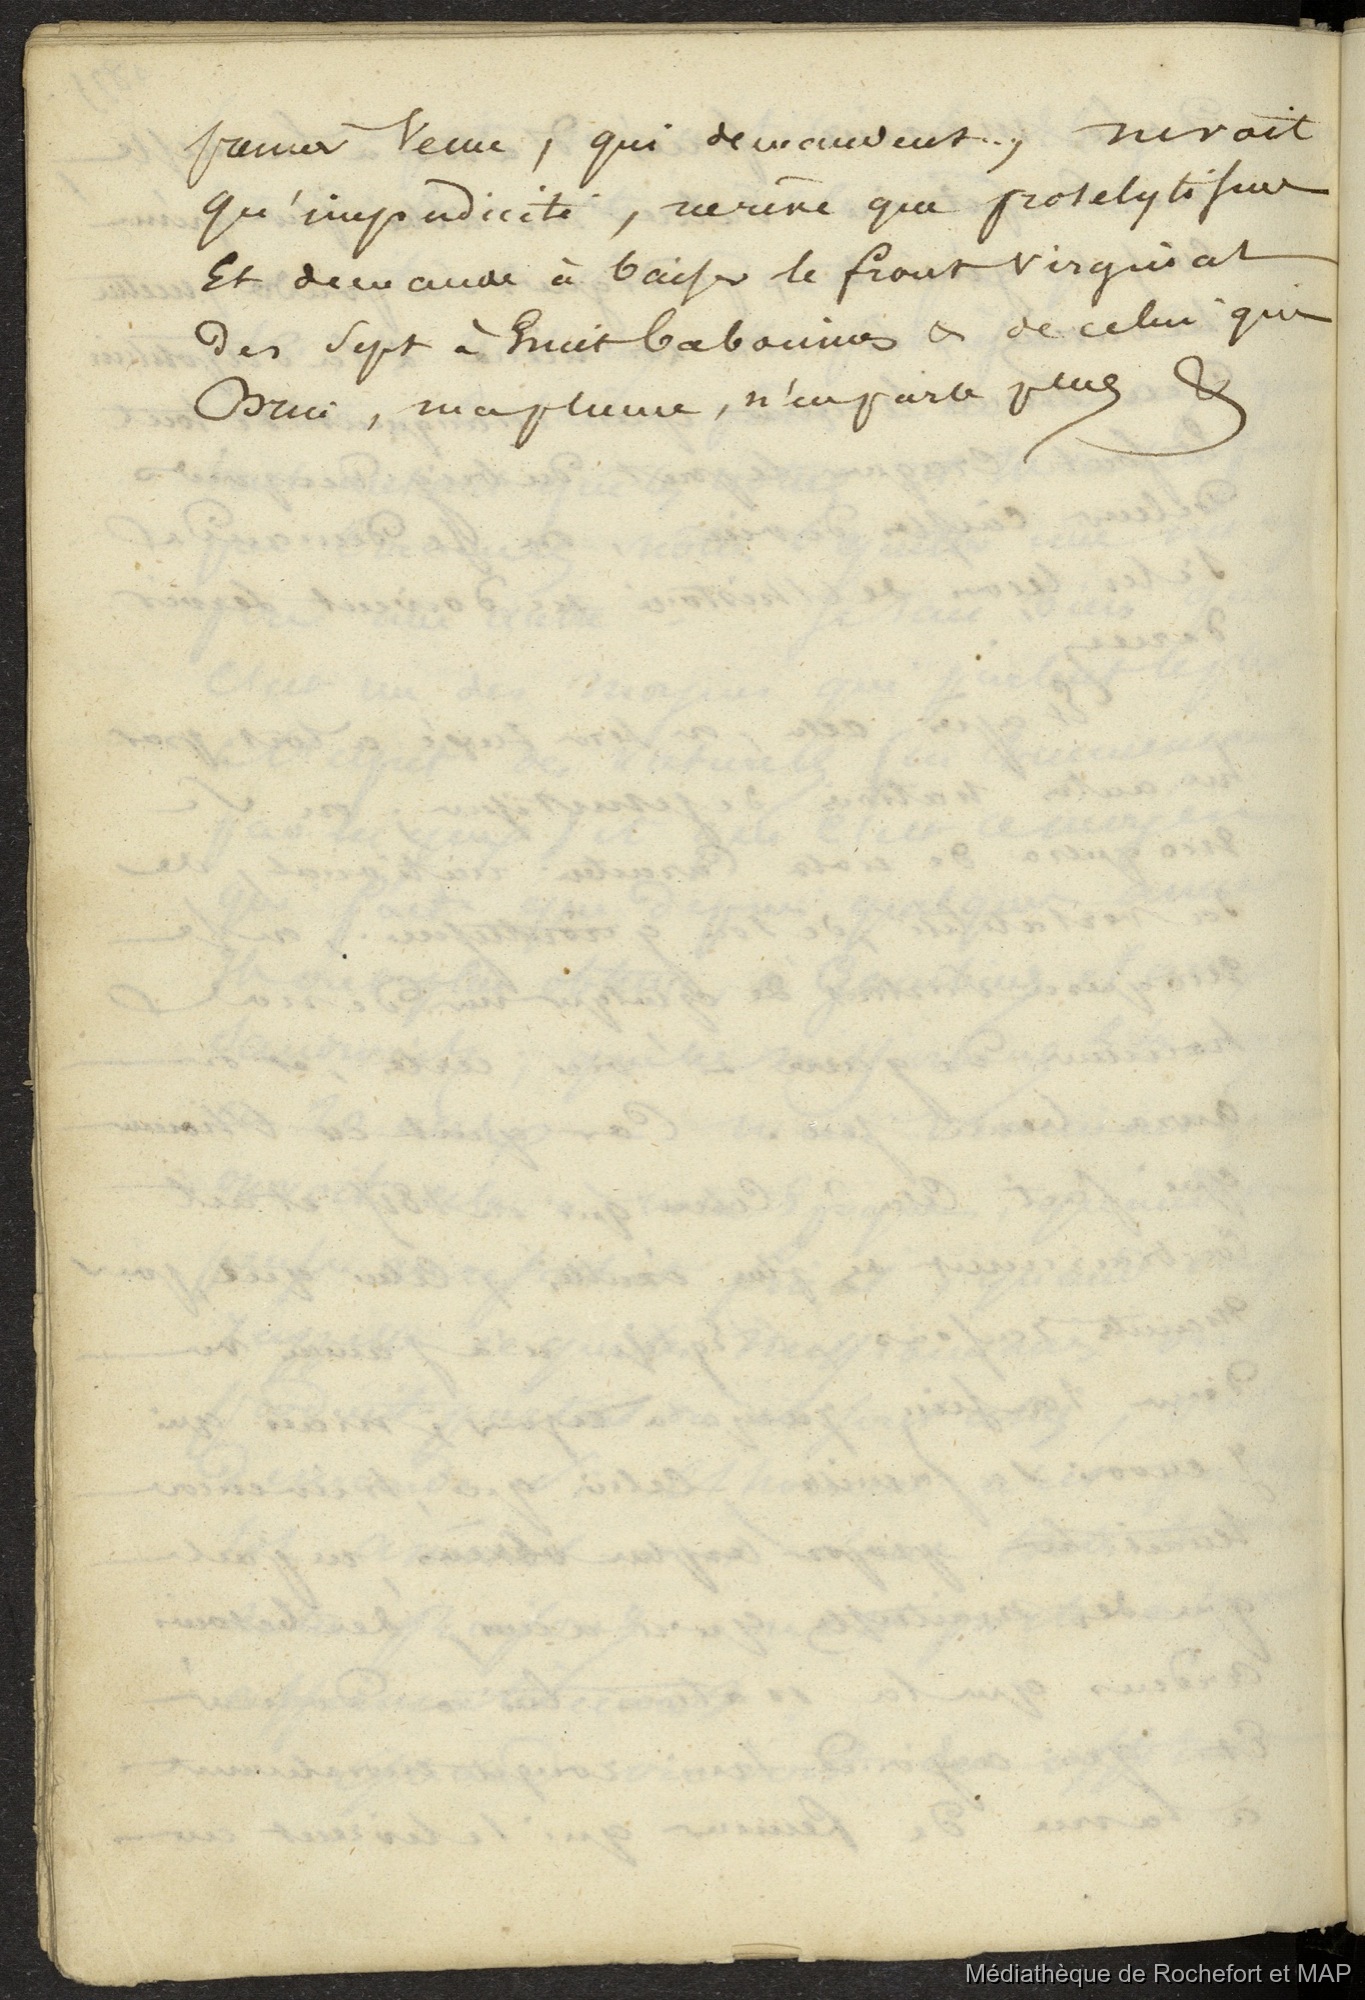 premier venu, qui demandent.., ne voit
qu'impudicité, ne rêve que proselytisme
Et demande à baiser le front virginal
Des sept à huit babouines & de celui qui
, ma plume, n'en parle plus &
Médiathèque de Rochefort et MAP